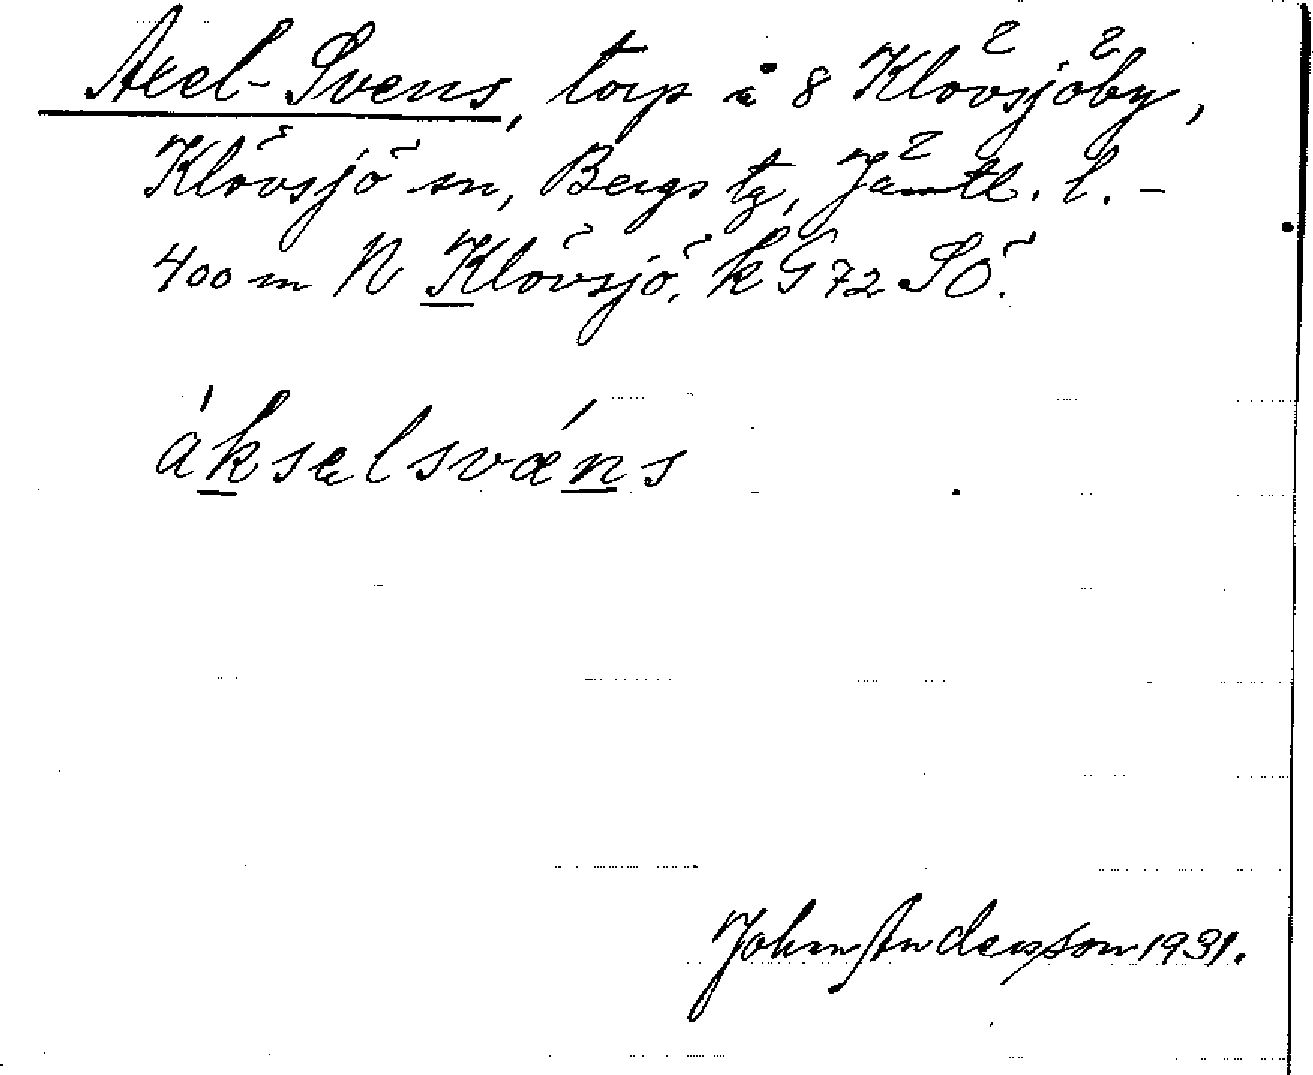 Axel-Svens, torp i 8 Klövsjöby,
Klövsjö sn, Bergs tg, Jämtl. l. -
400 m N Klövsjö, kG 72 SÖ.
áksęlsvǽns
John Andersson 1931.